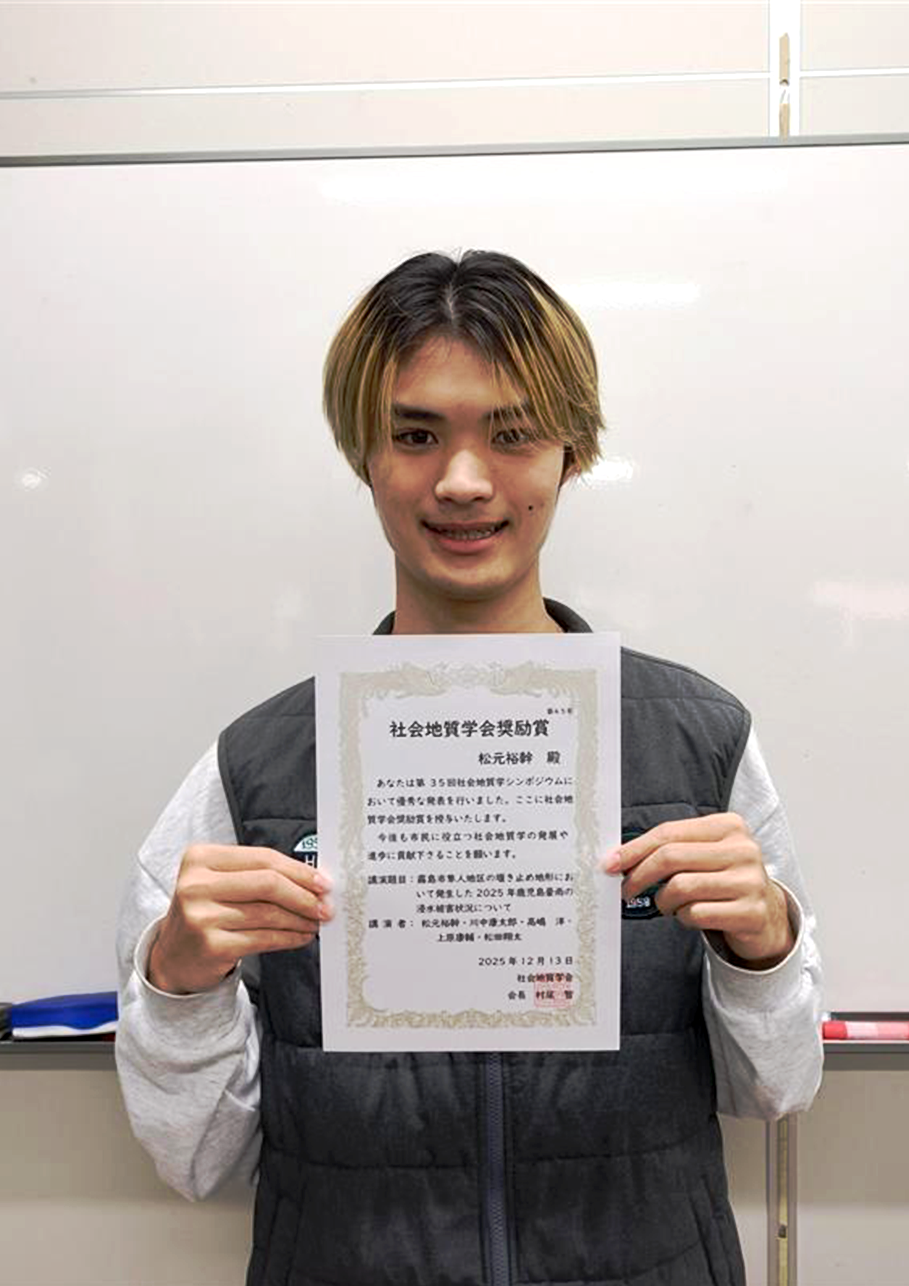 第45号
社会地質学会奨励賞
松元裕幹 殿
あなたは第 35回社会地質学シンポジウムに
おいて優秀な発表を行いました。ここに社会地
質学会奨励賞を授与いたします。
今後も市民に役立つ社会地質学の発展や
進歩に貢献下さることを願います。
講演題目:霧島市隼人地区の堰き止め地形にお
いて発生した2025年鹿児島豪雨の
浸水被害状況について
講演者: 松元裕幹・川中康太郎・高嶋 洋・
上原康輔・松田翔太
2025年12月13日
社会地質学会
会長 村尾 智
1959